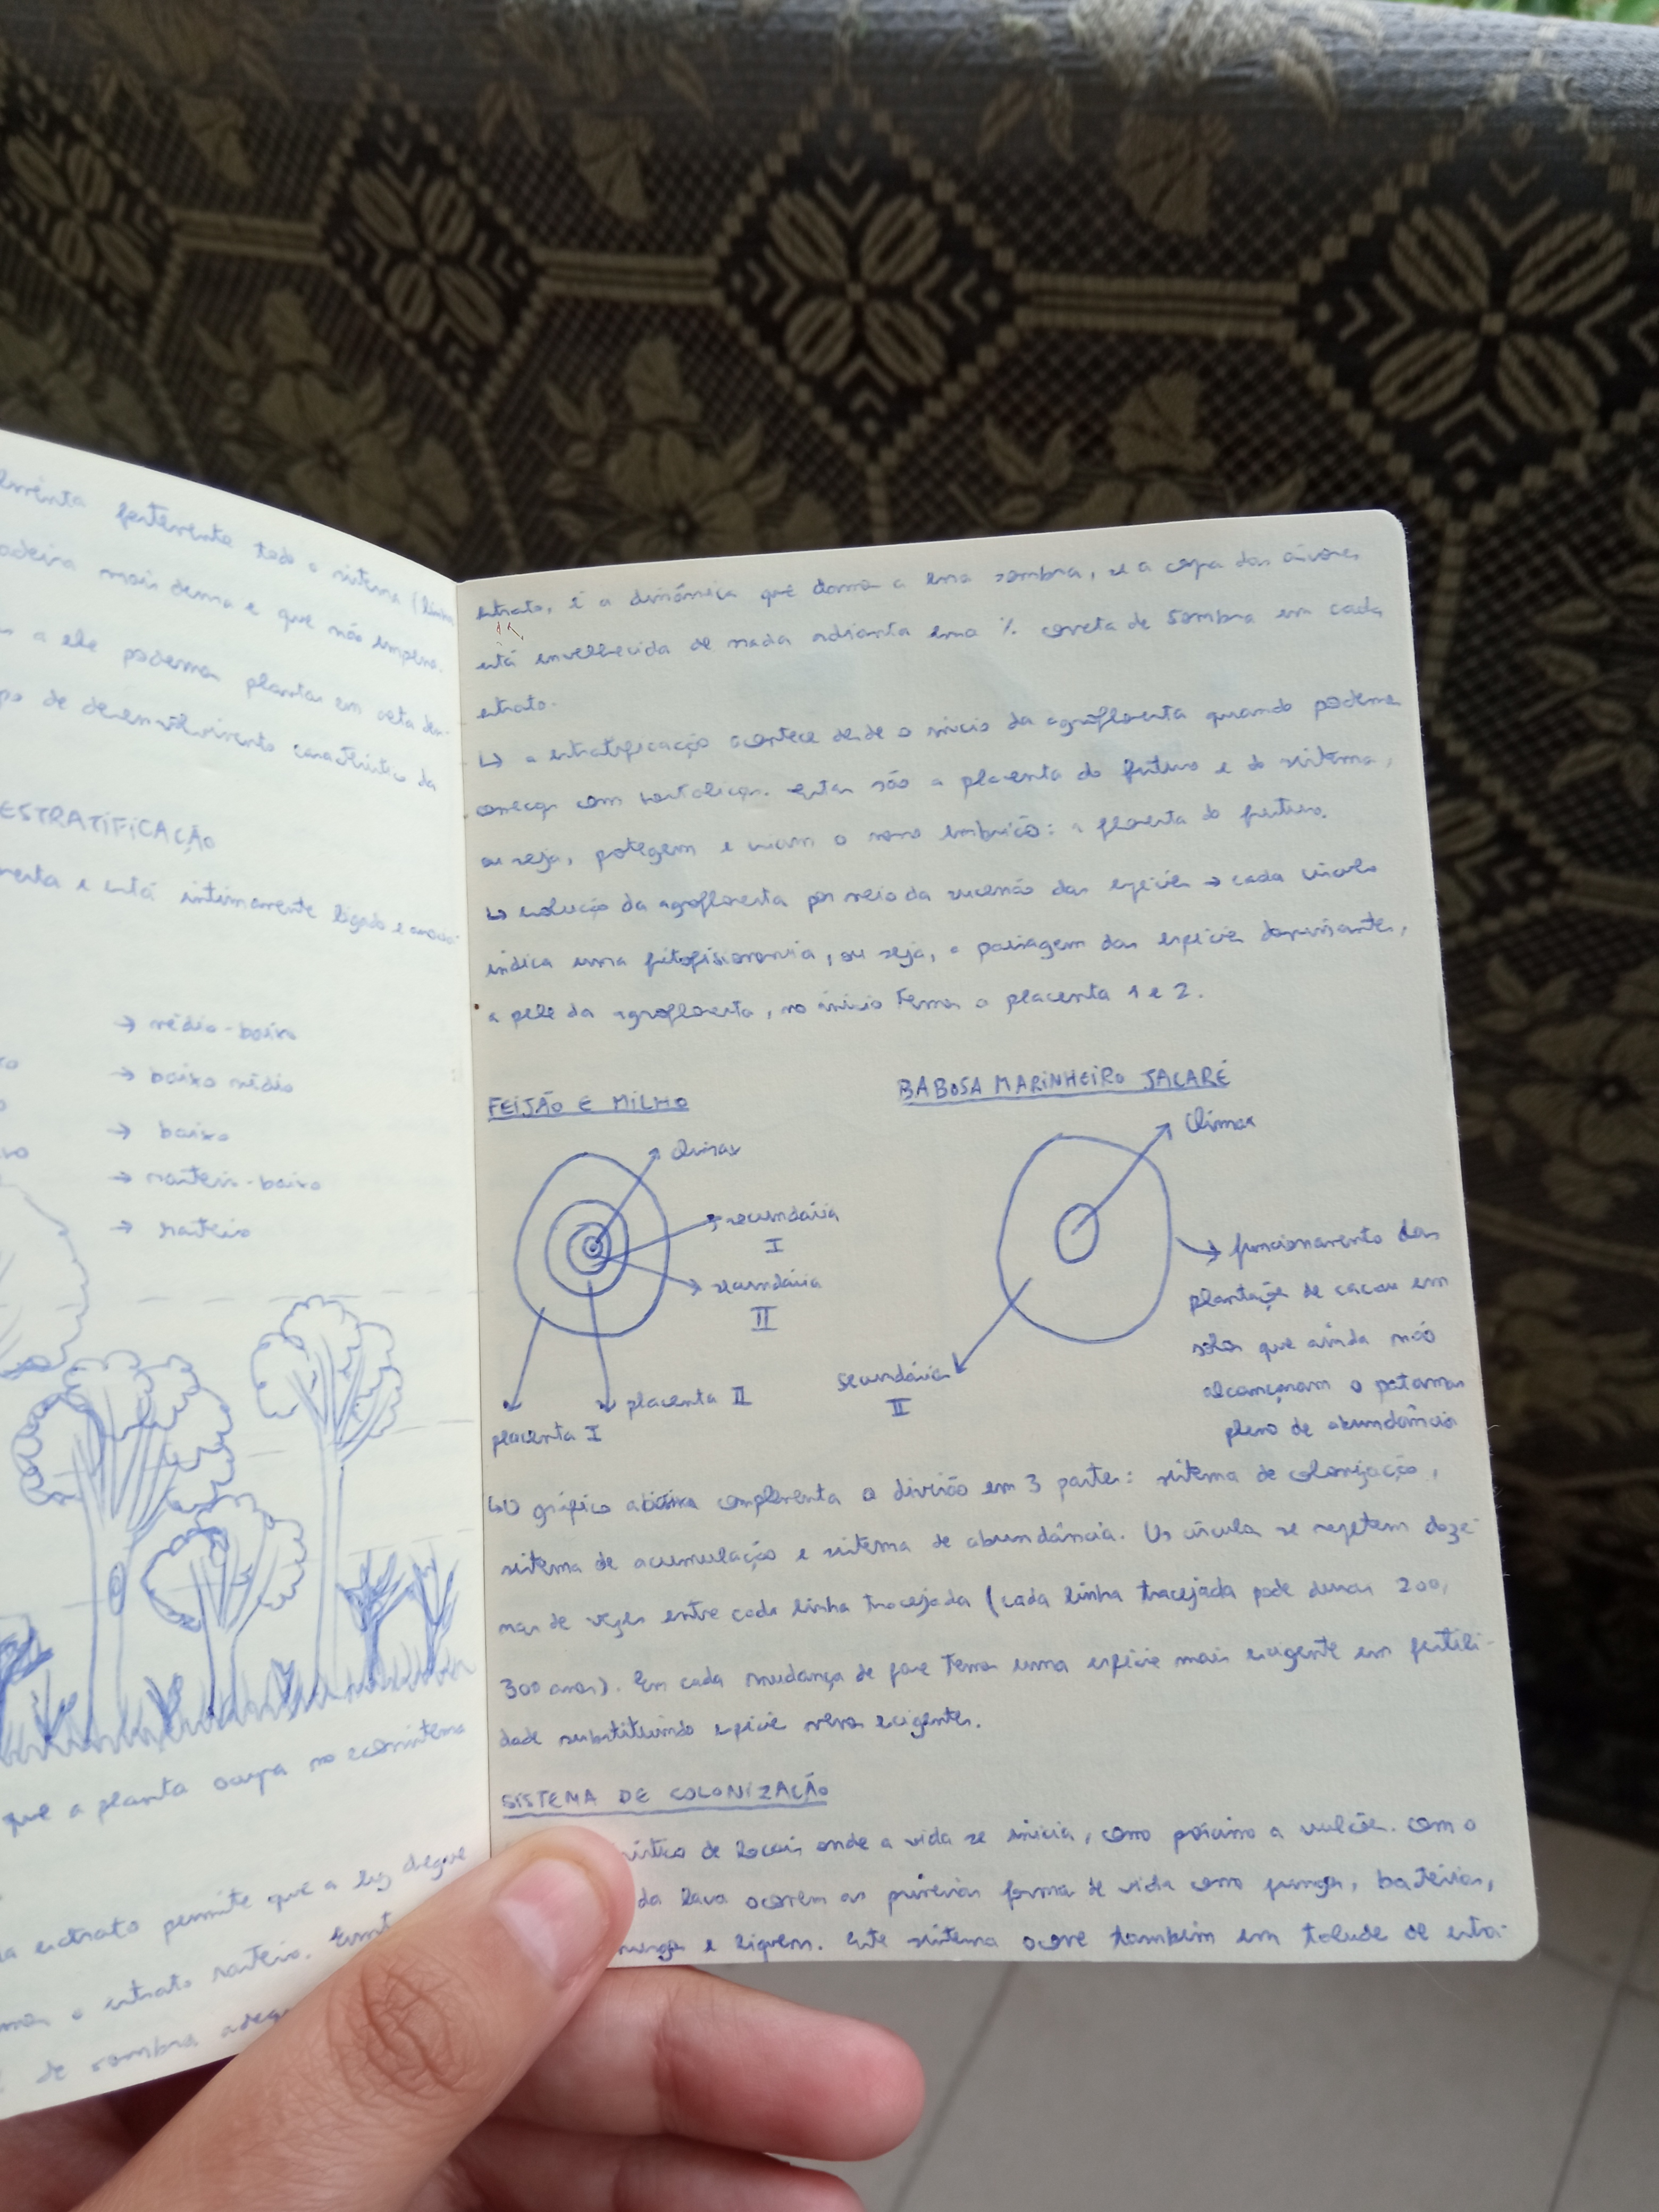 fortemente todo o sistema (linha
mais densa e que não empena.
a ele podemos plantar em certa den-
de desenvolvimento característico da
ESTRATIFICAÇÃO
e está intimamente ligado e associ-
→ médio-baixo
→ baixo médio
→ baixo
→ rasteiro-baixo
→ rasteiro
que a planta ocupa no ecossistema
extrato permite que a luz chegue
o extrato rasteiro.
de sombra
estrato, é a dinâmica que damos a essa sombra, se a copa das árvores
está envelhecida de nada adianta uma % correta de sombra em cada
estrato.
↳ a estratificação acontece desde o início da agrofloresta quando podemos
começar com hortaliças. Estas são a placenta do futuro e do sistema,
ou seja, protegem e criam o novo embrião: a floresta do futuro.
↳ evolução da agrofloresta por meio da sucessão das espécies → cada círculo
indica uma fitofisionomia, ou seja, a paisagem das espécies dominantes,
a pele da agrofloresta, no início temos a placenta 1 e 2.
FEIJÃO E MILHO
BABOSA MARINHEIRO JACARÉ
climax
secundária
I
secundária
II
placenta II
placenta I
Climax
secundária
II
→ funcionamento das
plantações de cacau em
solos que ainda não
alcançaram o patamar
pleno de abundância
↳ O gráfico abaixo complementa a divisão em 3 partes: sistema de colonização,
sistema de acumulação e sistema de abundância. Os círculos se repetem deze-
nas de vezes entre cada linha tracejada (cada linha tracejada pode durar 200,
300 anos). Em cada mudança de fase temos uma espécie mais exigente em fertili-
dade substituindo espécie menos exigentes.
SISTEMA DE COLONIZAÇÃO
de locais onde a vida se inicia, como próximo a vulcões. Com o
da lava ocorrem as primeiras formas de vida como fungos, bactérias,
e liquens. Este sistema ocorre também em talude de estra-